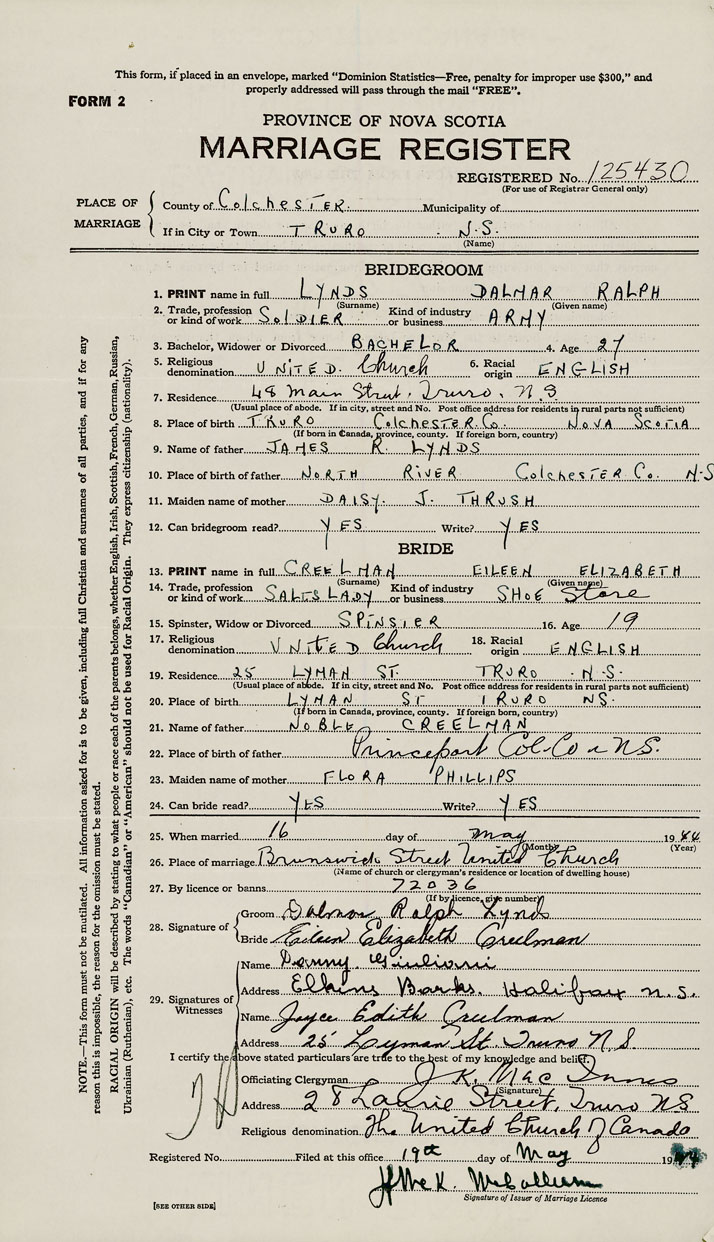 This form, if placed in an envelope, marked "Dominion Statistics—Free, penalty for improper use $300," and
properly addressed will pass through the mail "FREE".
FORM 2
PROVINCE OF NOVA SCOTIA
MARRIAGE REGISTER
REGISTERED No. 125430
(For use of Registrar General only)
PLACE OF MARRIAGE
County of Colchester. Municipality of
If in City or Town TRURO N.S.
(Name)
BRIDEGROOM
1. PRINT name in full LYNDS DALMAR RALPH
(Surname) (Given name)
2. Trade, profession or kind of work SOLDIER Kind of industry or business ARMY
3. Bachelor, Widower or Divorced BACHELOR 4. Age 27
5. Religious denomination UNITED. Church 6. Racial origin ENGLISH
7. Residence 48 Main Street, Truro, N.S.
(Usual place of abode. If in city, street and No. Post office address for residents in rural parts not sufficient)
8. Place of birth TRURO Colchester.Co. NOVA SCOTIA
(If born in Canada, province, county. If foreign born, country)
9. Name of father JAMES R. LYNDS
10. Place of birth of father NORTH RIVER Colchester Co. N-S
11. Maiden name of mother DAISY. J. THRUSH
12. Can bridegroom read? YES Write? YES
BRIDE
13. PRINT name in full CREELMAN EILEEN ELIZABETH
(Surname) (Given name)
14. Trade, profession or kind of work SALESLADY Kind of industry or business SHOE Store
15. Spinster, Widow or Divorced SPINSIER 16. Age 19
17. Religious denomination UNITED Church 18. Racial origin ENGLISH
19. Residence 25 LYMAN ST. TRURO N.S.
(Usual place of abode. If in city, street and No. Post office address for residents in rural parts not sufficient)
20. Place of birth LYMAN ST TRURO NS.
(If born in Canada, province, county. If foreign born, country)
21. Name of father NOBLE CREELMAN
22. Place of birth of father Princeport Col-Co N.S.
23. Maiden name of mother FLORA PHILLIPS
24. Can bride read? YES Write? YES
25. When married 16 day of May 1944
(Month) (Year)
26. Place of marriage Brunswick Street United Church
(Name of church or clergyman's residence or location of dwelling house)
27. By licence or banns 72036
(If by licence, give number)
28. Signature of
Groom Dalmar Ralph Lynds
Bride Eileen Elizabeth Creelman
29. Signatures of Witnesses
Name Danny Giulioni
Address Elkins Barks. Halifax N.S.
Name Joyce Edith Creelman
Address 25 Lyman St. Truro N.S.
I certify the above stated particulars are true to the best of my knowledge and belief.
Officiating Clergyman J. K. MacInnes
(Signature)
Address 28 Laurie Street, Truro NS
Religious denomination The United Church of Canada
Registered No. Filed at this office 19th day of May 1944
McK. McCallum
Signature of Issuer of Marriage Licence
[SEE OTHER SIDE]
NOTE.—This form must not be mutilated. All information asked for is to be given, including full Christian and surnames of all parties, and if for any
reason this is impossible, the reason for the omission must be stated.
RACIAL ORIGIN will be described by stating to what people or race each of the parents belongs, whether English, Irish, Scottish, French, German, Russian,
Ukrainian (Ruthenian), etc. The words "Canadian" or "American" should not be used for Racial Origin. They express citizenship (nationality).